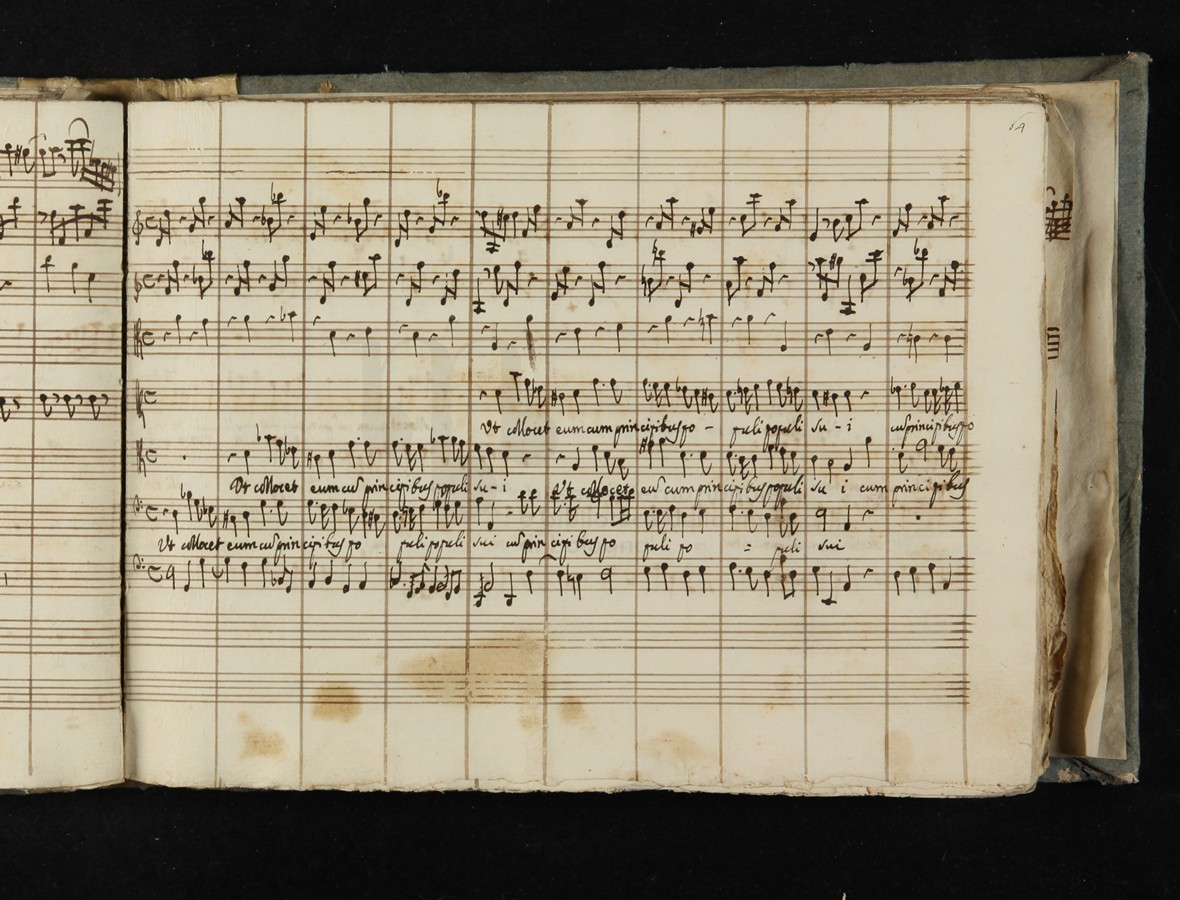 Ut collocet eum cum principibus po - puli populi su - i cu͂ principibus po
Ut collocet eum cu͂ principibus populi su - i Ut collocet eu͂ cum principibus populi su i cum principibus
Ut collocet eum cu͂ principibus po puli populi sui cu͂ principibus po puli po = puli sui